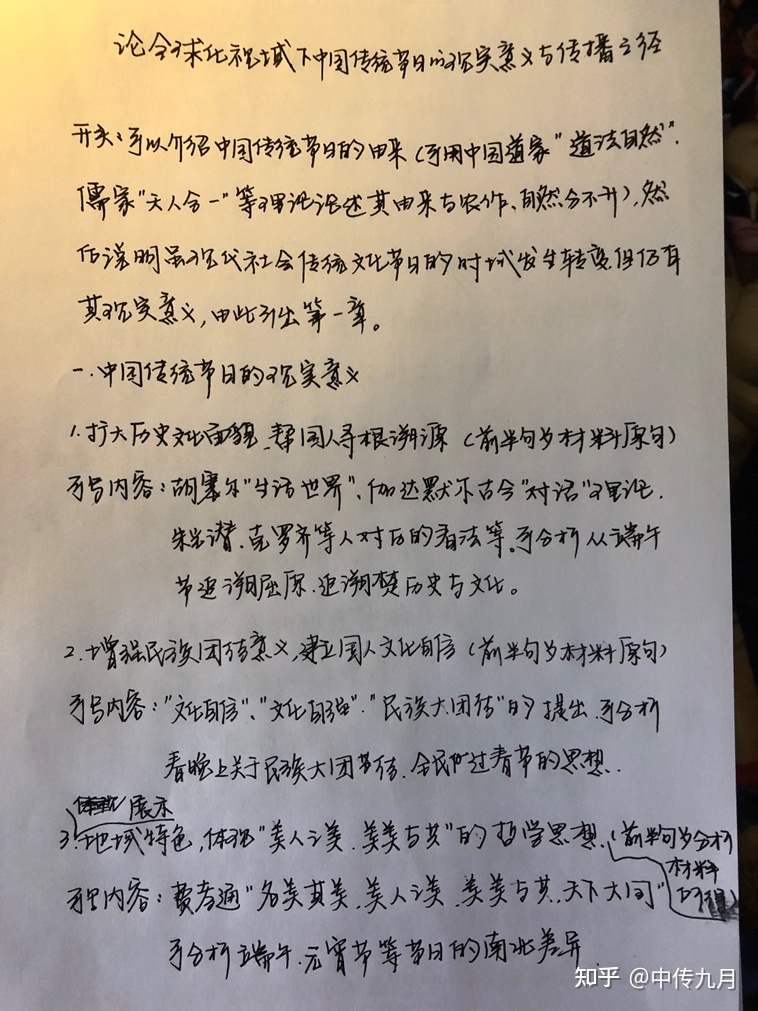 论全球化视域下中国传统节日的现实意义与传播之径
开头：可以介绍中国传统节日的由来（可用中国道家"道法自然"、
儒家"天人合一"等理论论述其由来与农作、自然分不开），然
后说明虽现代社会传统文化节日的时域发生转变，但仍有
其现实意义，由此引出第一章。
一.中国传统节日的现实意义
1.扩大历史文化面貌，帮国人寻根溯源（前半句为材料原句）
可写内容：胡塞尔"生活世界"、伽达默尔古今"对话"理论.
朱光潜、克罗齐等人对历的看法等。可分析从端午
节追溯屈原、追溯楚历史与文化。
2.增强民族团结意义，建立国人文化自信（前半句为材料原句）
可写内容："文化自信"、"文化自强"、"民族大团结"的提出.可分析
春晚上关于民族大团结、全民共过春节的思想.
展示
3.地域特色，体现"美人之美、美美与共"的哲学思想.（前半句为分析
材料
可写内容：费孝通"各美其美、美人之美、美美与共、天下大同"
可分析端午、元宵节等节日的南北差异
知乎 @中传九月